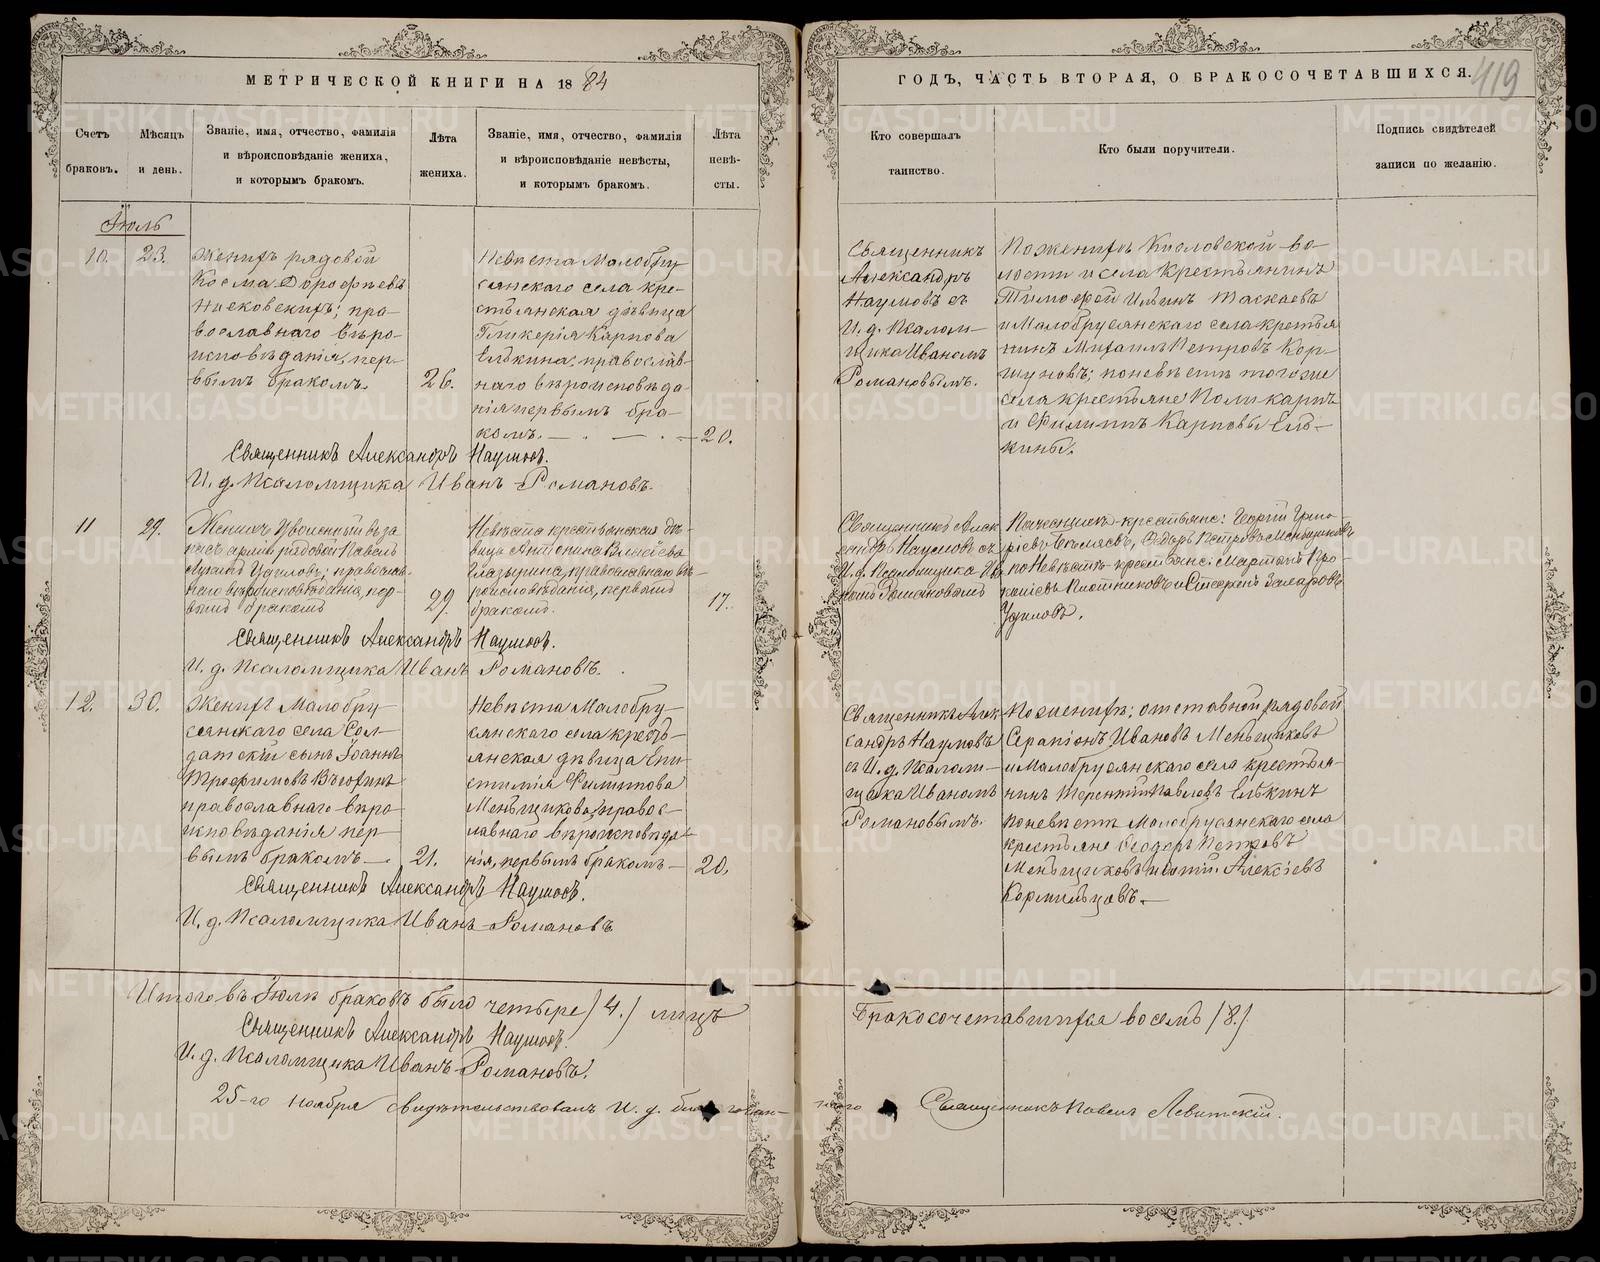 МЕТРИЧЕСКОЙ КНИГИ НА 1884
ГОДЪ, ЧАСТЬ ВТОРАЯ, О БРАКОСОЧЕТАВШИХСЯ.
419
Счетъ
браковъ.
Мѣсяцъ
и день.
Званіе, имя, отчество, фамилія
и вѣроисповѣданіе жениха,
и которымъ бракомъ.
Лѣта
жениха.
Званіе, имя, отчество, фамилія
и вѣроисповѣданіе невѣсты,
и которымъ бракомъ.
Лѣта
невѣ-
сты.
Кто совершалъ
таинство.
Кто были поручители.
Подпись свидѣтелей
записи по желанію.
Іюль
10.
23.
Женихъ рядовой
Косма Дорофѣевъ
православнаго вѣро-
исповѣданія, пер-
вымъ бракомъ.
26.
Невѣста Малобру-
сянскаго села кре-
стьянская дѣвица
Гликерія Карпова
Елькина, православ-
наго вѣроисповѣда-
нія первымъ бра-
комъ.
20.
Священникъ
Александръ
Наумовъ съ
И. д. Псалом-
щика Иваномъ
Романовымъ.
По женихѣ Кисловской во-
лости и села Крестьянинъ
Тимофей Ильинъ Таскаевъ
и Малобрусянскаго села крестья-
нинъ Михаилъ Петровъ Кор-
шуновъ; по невѣстѣ того же
села крестьяне Поликарпъ
и Филиппъ Карповы Ель-
кины.
Священникъ Александръ Наумовъ.
И. д. Псаломщика Иванъ Романовъ.
11
29.
Женихъ Уволенный въ за-
пасъ арміи рядовой Павелъ
православ-
наго вѣроисповѣданія, пер-
вымъ бракомъ
29.
Невѣста крестьянская дѣ-
вица Антонина
Глазырина, православнаго вѣ-
роисповѣданія, первымъ
бракомъ.
17.
Священникъ Алек-
сандръ Наумовъ съ
И. д. Псаломщика Ив-
номъ Романовымъ
По женихѣ крестьяне: Георгій Григо-
ріевъ Бѣляевъ, Ѳедоръ Петровъ Меньшиковъ
по Невѣстѣ крестьяне: Мартинъ Про-
копіевъ Плотниковъ и Стефанъ Захаровъ
Удиловъ.
Священникъ Александръ Наумовъ.
И. д. Псаломщика Иванъ Романовъ.
12.
30.
Женихъ Малобру-
сянскаго села Сол-
датскій сынъ Іоаннъ
Трофимовъ
православнаго вѣро-
исповѣданія пер-
вымъ бракомъ
21.
Невѣста Малобру-
сянскаго села кресть-
янская дѣвица Епи-
стимія Филиппова
Меньщикова, правос-
лавнаго вѣроисповѣда-
нія, первымъ бракомъ
20.
Священникъ Алек-
сандръ Наумовъ
съ И. д. Псалом-
щика Иваномъ
Романовымъ.
По женихѣ: отставной рядовой
Серапіонъ Ивановъ Меньщиковъ
и Малобрусянскаго села крестья-
нинъ Терентій Павловъ Елькинъ
по невѣстѣ Малобрусянскаго села
крестьяне Ѳедоръ Петровъ
Меньщиковъ и Алексѣевъ
Кормильцовъ.
Священникъ Александръ Наумовъ.
И. д. Псаломщика Иванъ Романовъ
Итого въ Іюлѣ браковъ было четыре /4./ лицъ
Бракосочетавшихся восемь /8./
Священникъ Александръ Наумовъ.
И. д. Псаломщика Иванъ Романовъ.
25-го ноября свидѣтельствовалъ И. д. благочин-
наго Священникъ Павелъ Левитскій.
METRIKI.GASO-URAL.RU